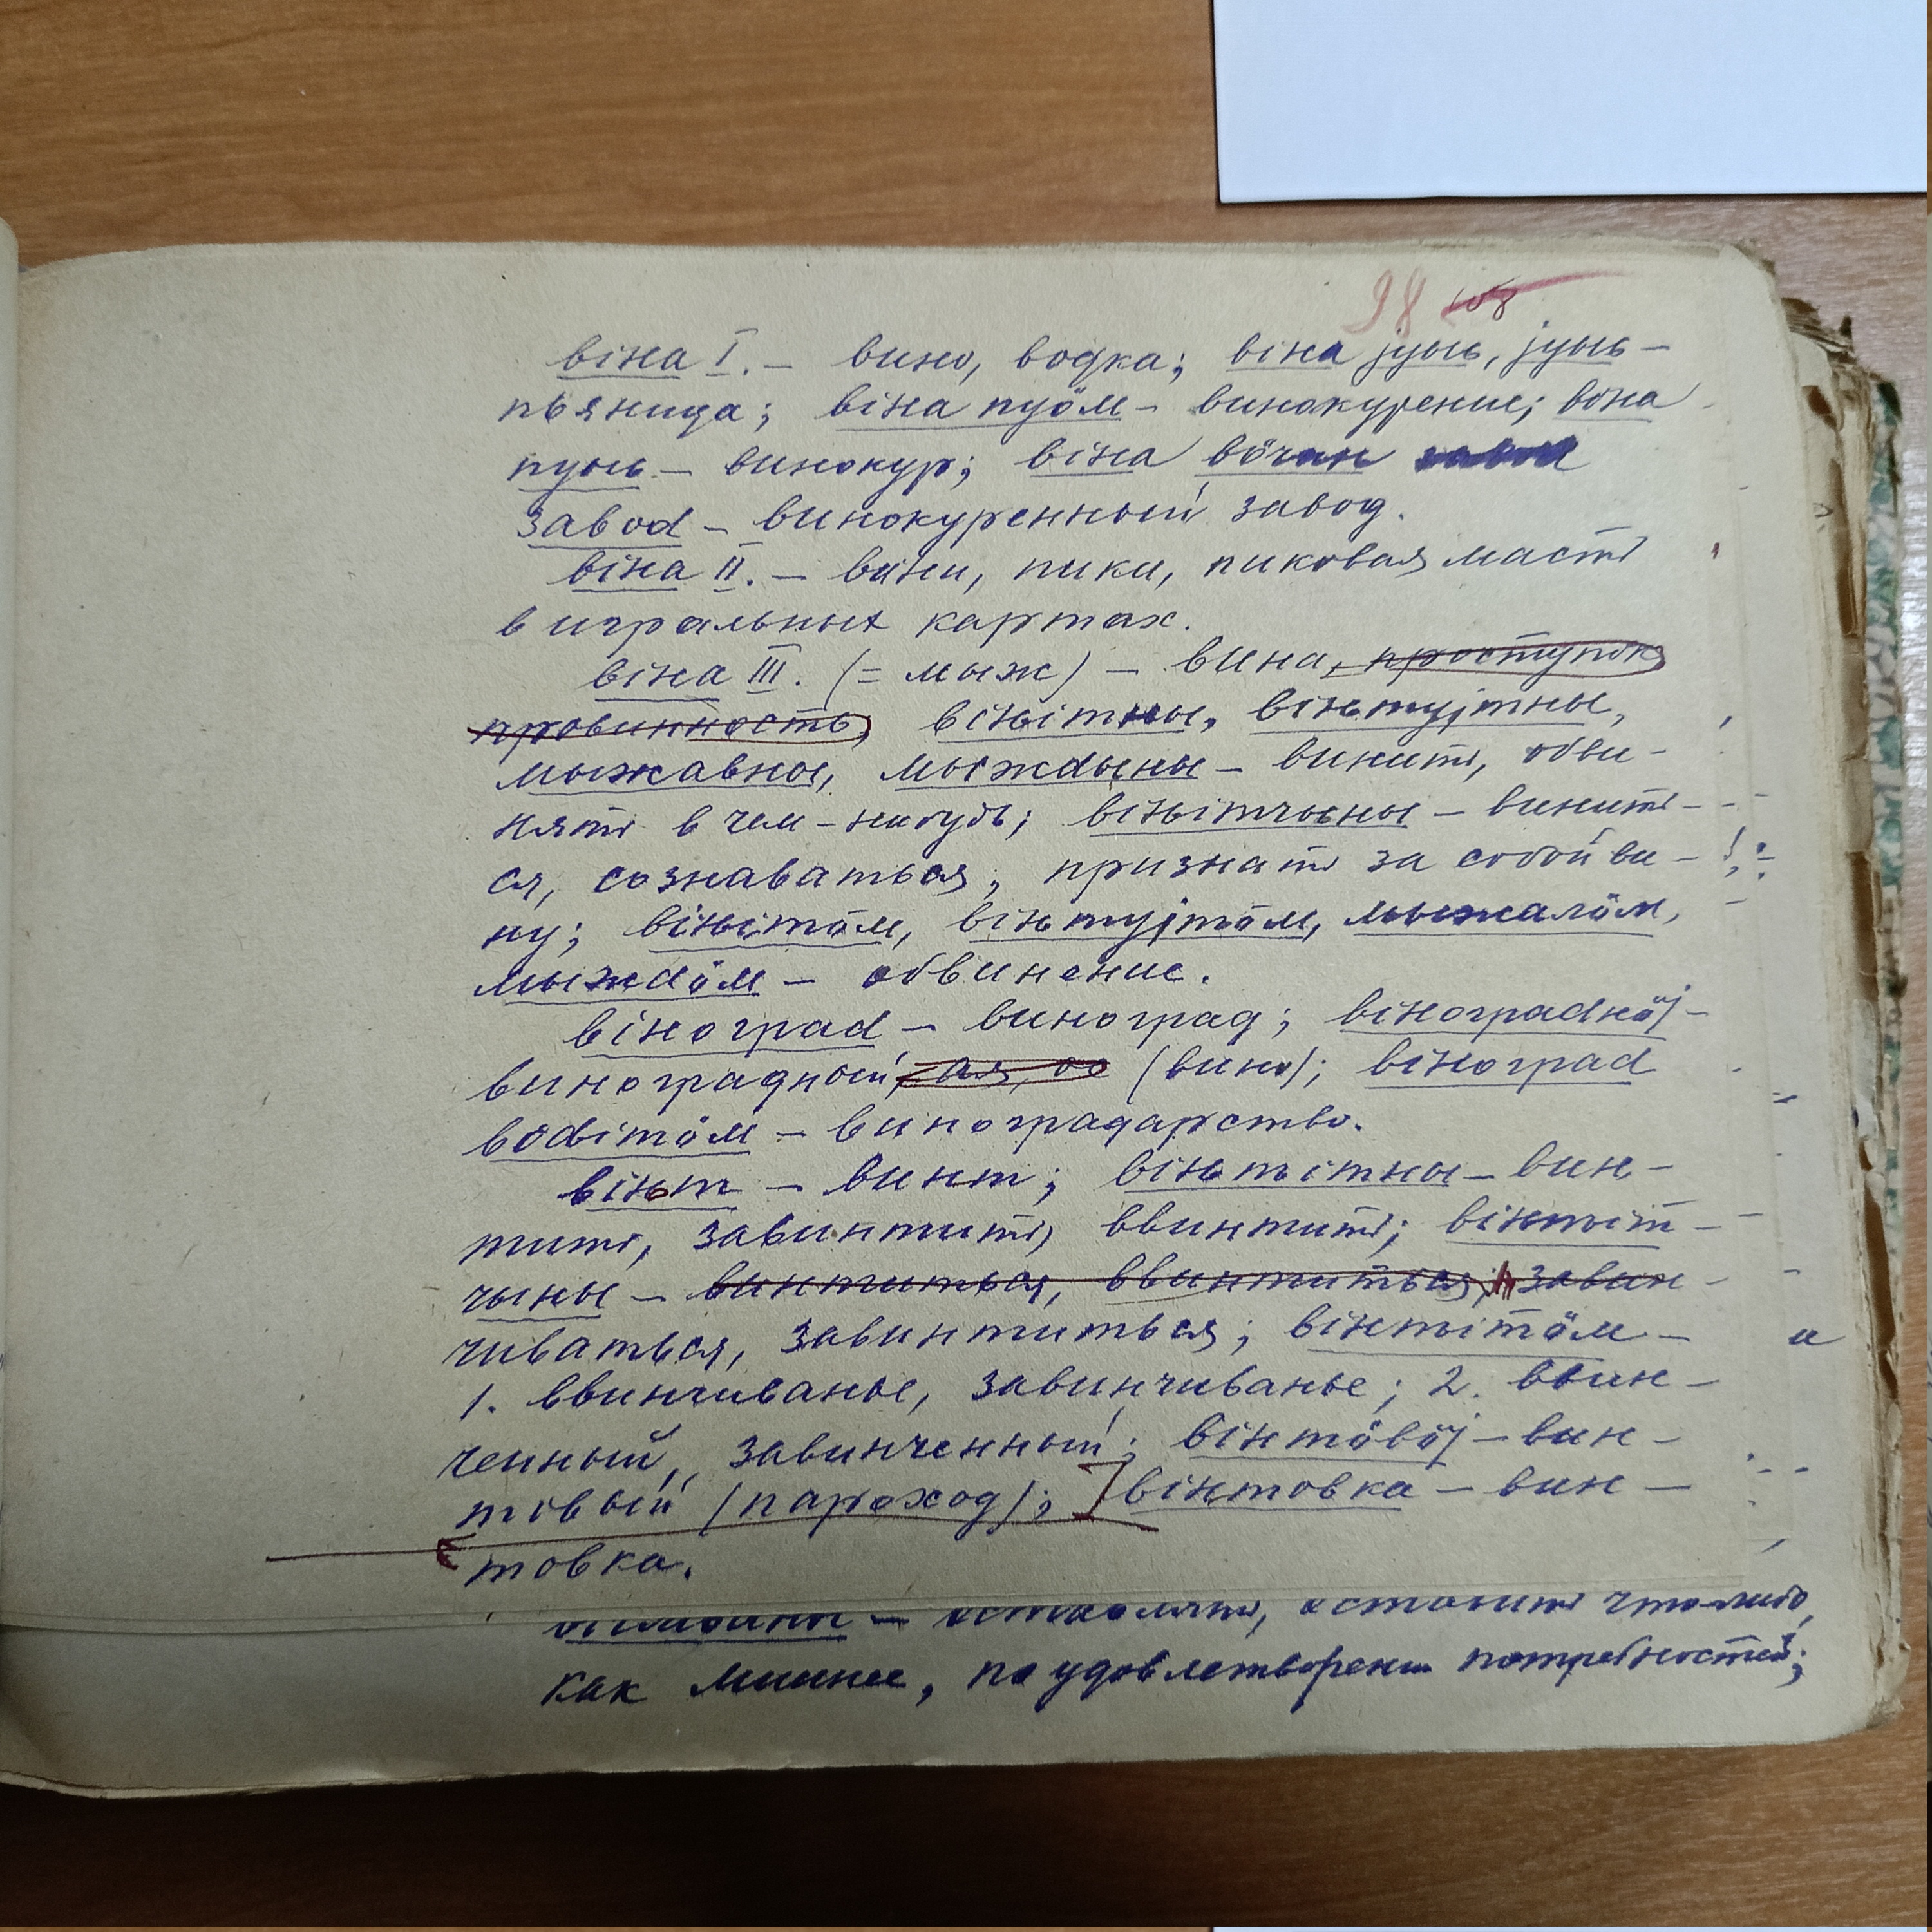 98 108
віна I. – вино, водка; віна jуыԍ, jуыԍ –
пьяница; віна пуöм – винокурение; віна
пуыԍ – винокур; віна вöчан завоd
завоd – винокуренный завод.
віна II. – вини, пики, пиковая масть
в игральных картах.
віна III. (= мыж) – вина, проступок
провинность, віԋітны, віԋтуjтны,
мыжавны, мыжdыны – винить, обви-
нять в чем-нибудь; віԋітчыны – винить-
ся, сознаваться, признать за собой ви-
ну; віԋітöм, віԋтуjтöм, мыжалöм,
мыжdöм – обвинение.
віноград – виноград; вінограднöj –
виноградный, ая, ое (вино); віноград
воdітöм – виноградарство.
віԋт – винт; віԋтітны – вин-
тить, завинтить, ввинтить; вінтіт-
чыны – винтиться, ввинтиться, завин-
чиваться, завинтиться; вінтітöм –
1. ввинчиванье, завинчиванье; 2. ввин-
ченный, завинченный; вінтöвöj – вин-
товый (пароход); вінтовка – вин-
товка.
– оставлять, оставить что-либо,
как лишнее, по удовлетворении потребностей;
и